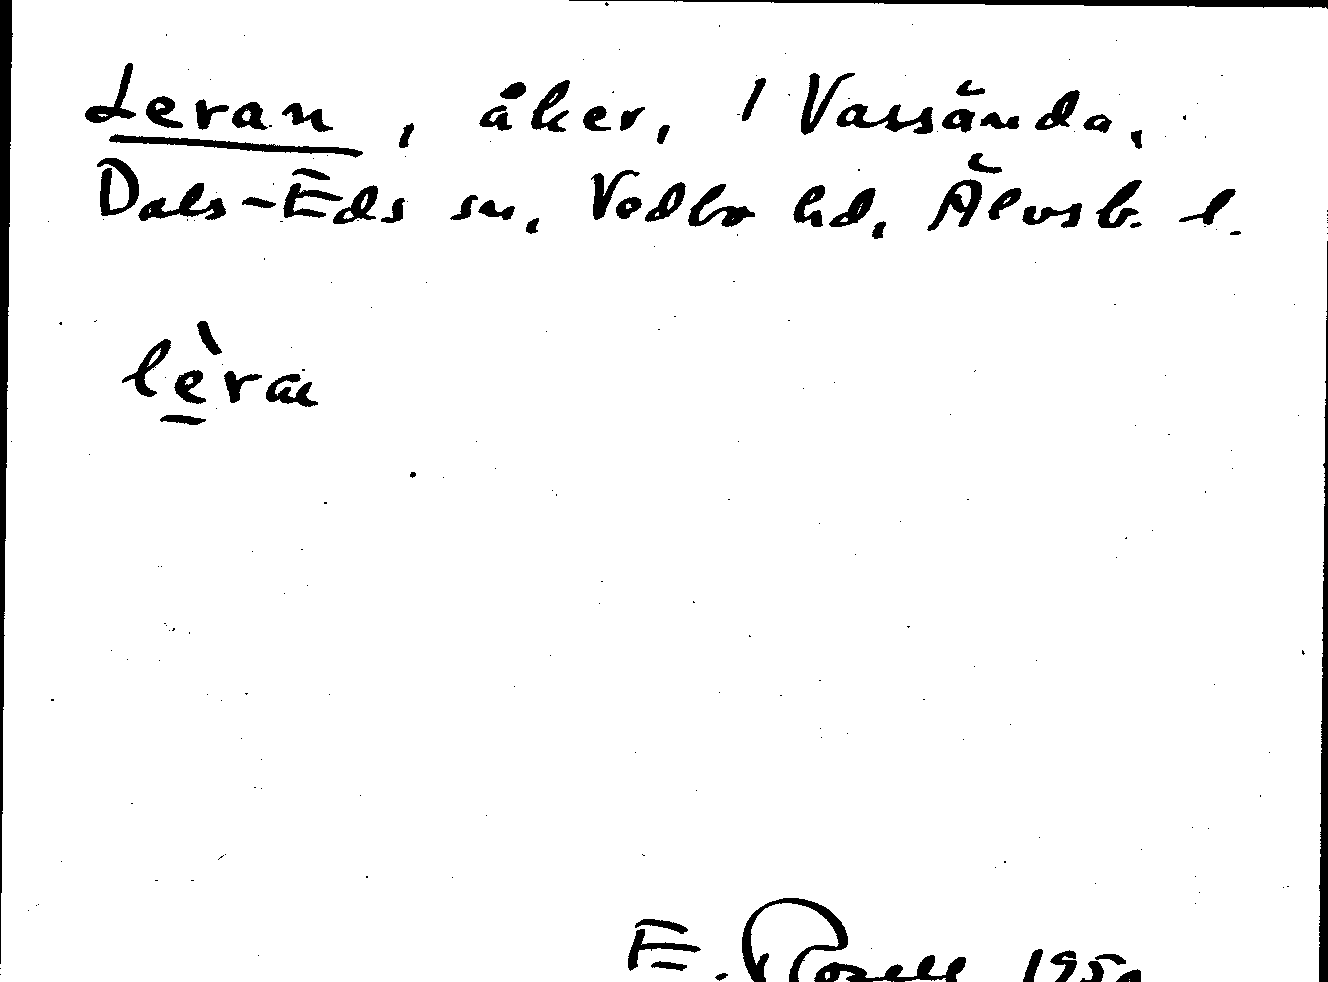 Leran, åker, / Vassända,
Dals-Eds sn, Vedbo hd, Älvsb. l.
lèra
E. Rosell 1950